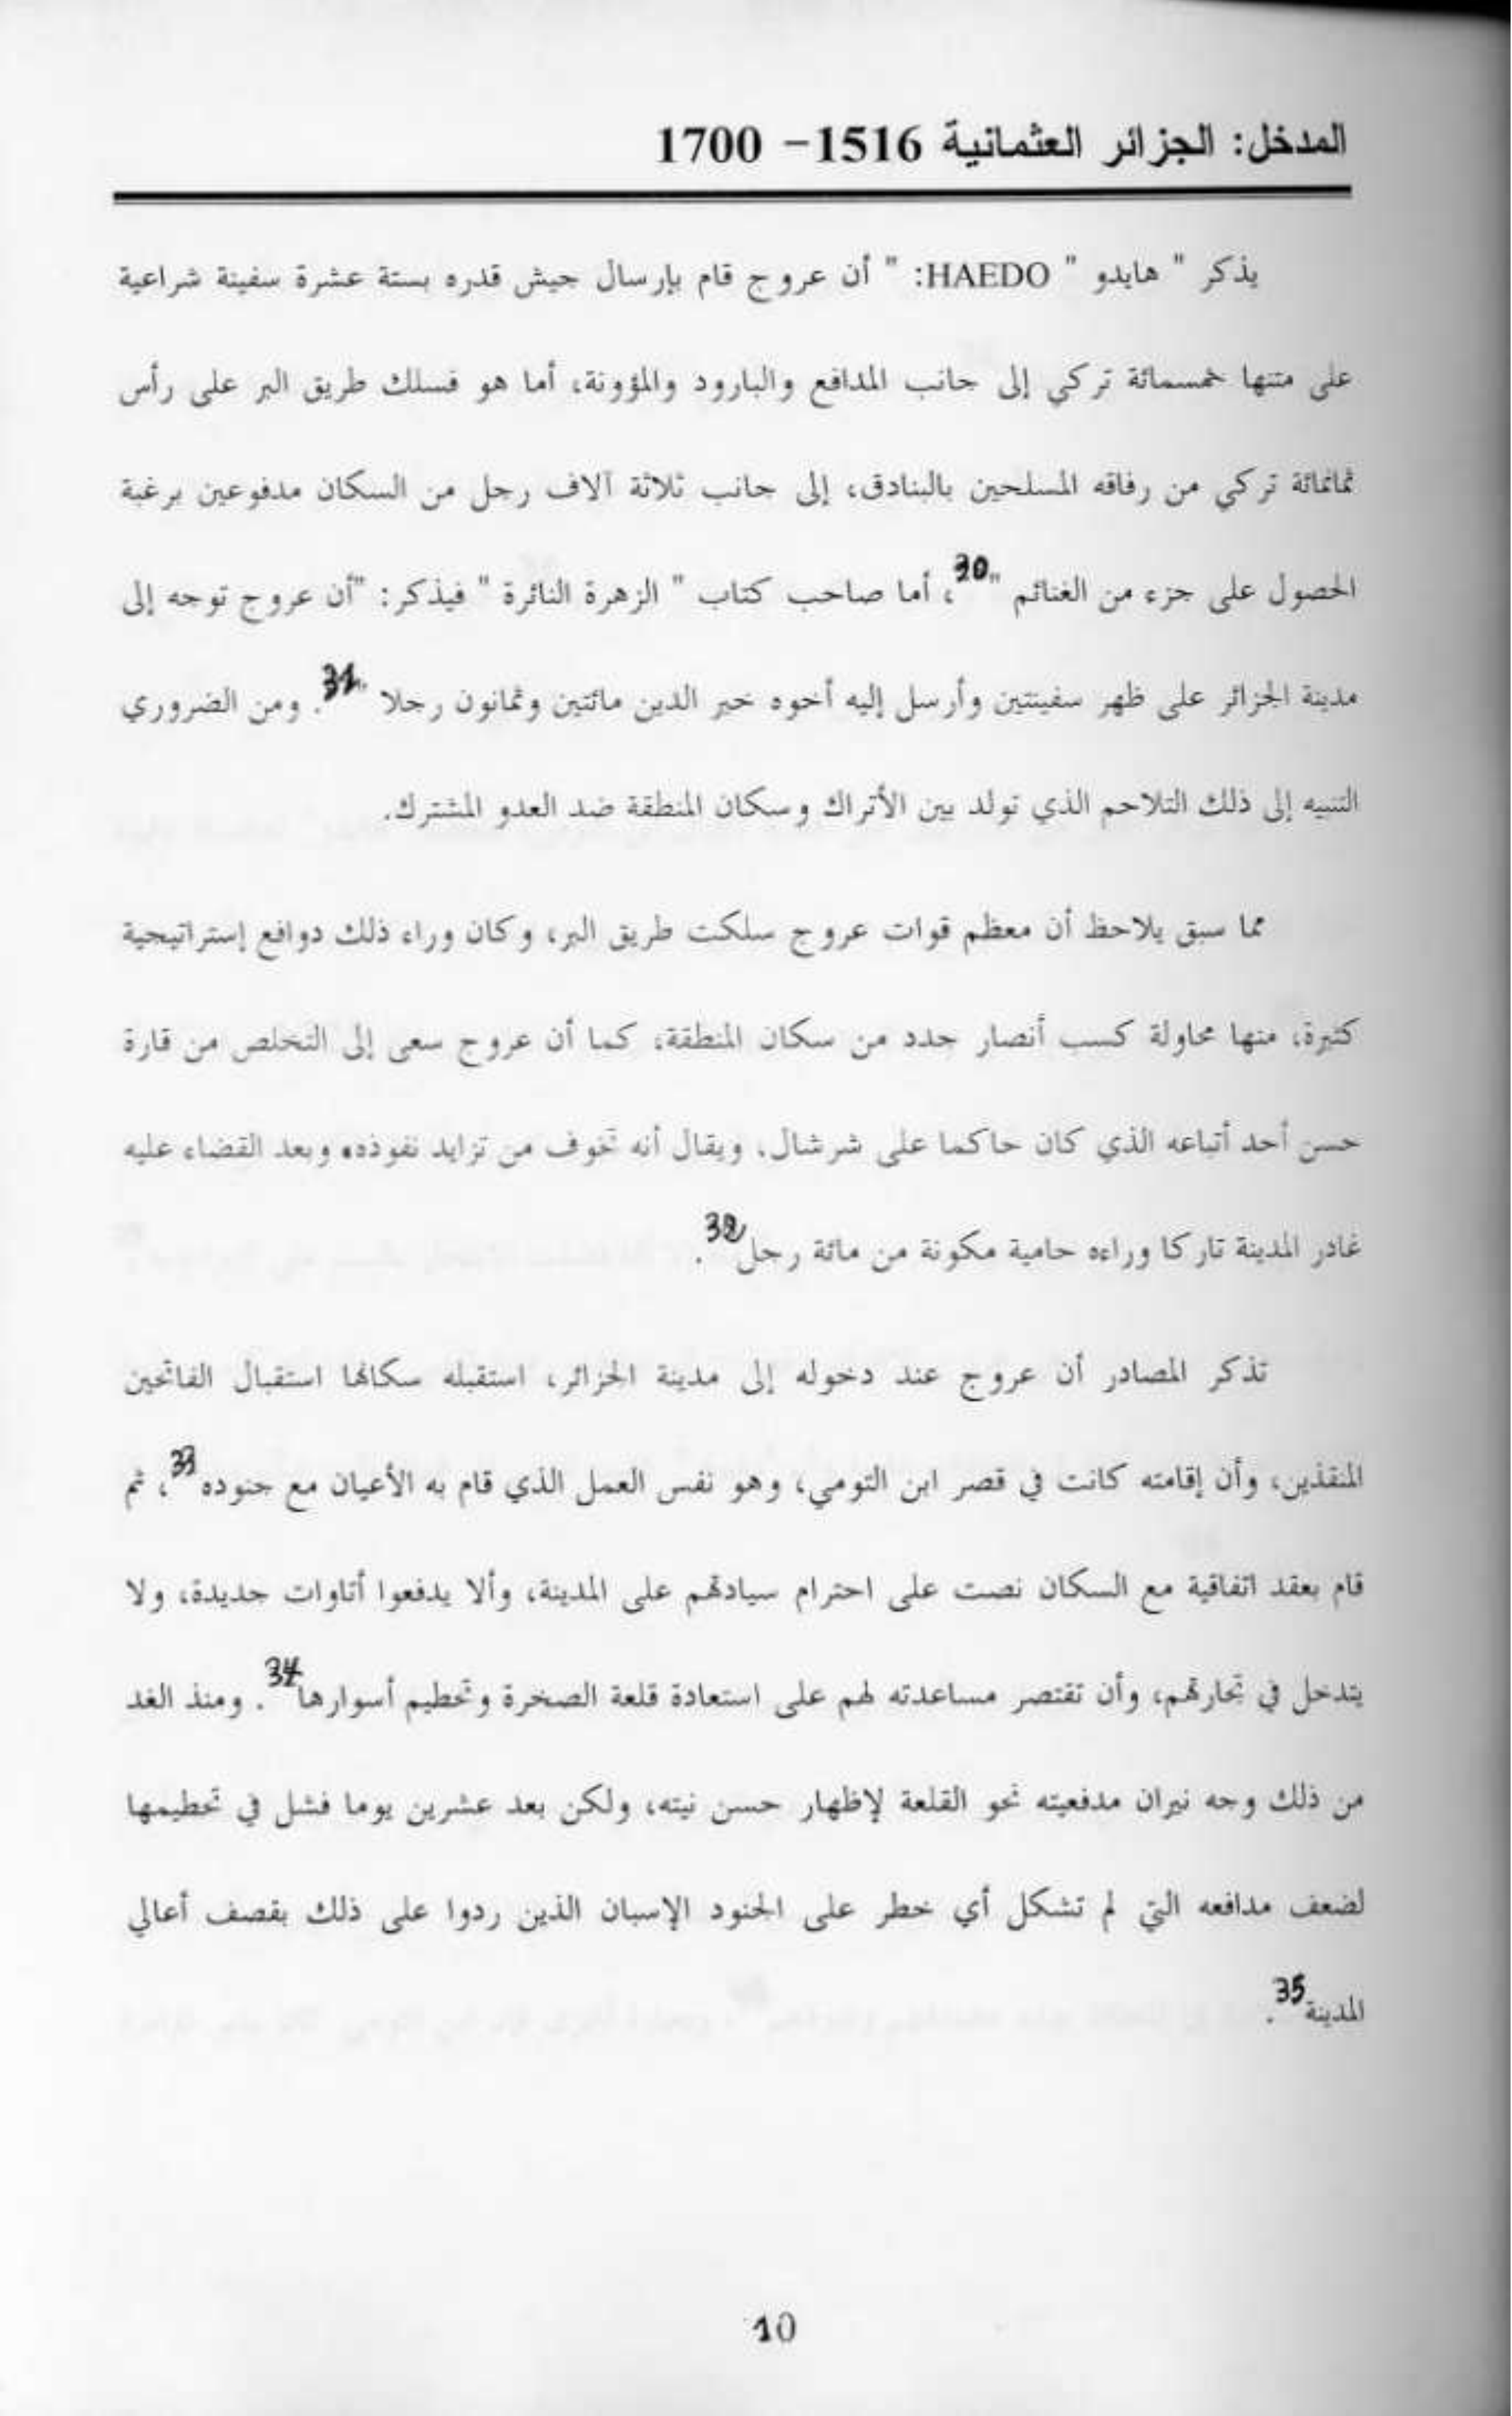 المدخل: الجزائر العثمانية 1516– 1700
يذكر " هايدو " HAEDO: " أن عروج قام بإرسال جيش قدره بستة عشرة سفينة شراعية
على متنها خمسمائة تركي إلى جانب المدافع والبارود والمؤونة، أما هو فسلك طريق البر على رأس
ثمانمائة تركي من رفاقه المسلحين بالبنادق، إلى جانب ثلاثة آلاف رجل من السكان مدفوعين برغبة
الحصول على جزء من الغنائم "30، أما صاحب كتاب " الزهرة النائرة " فيذكر: "أن عروج توجه إلى
مدينة الجزائر على ظهر سفينتين وأرسل إليه أخوه خير الدين مائتين وثمانون رجلا "31. ومن الضروري
التنبيه إلى ذلك التلاحم الذي تولد بين الأتراك وسكان المنطقة ضد العدو المشترك.
مما سبق يلاحظ أن معظم قوات عروج سلكت طريق البر، وكان وراء ذلك دوافع إستراتيجية
كثيرة، منها محاولة كسب أنصار جدد من سكان المنطقة، كما أن عروج سعى إلى التخلص من قارة
حسن أحد أتباعه الذي كان حاكما على شرشال. ويقال أنه تخوف من تزايد نفوذه، وبعد القضاء عليه
غادر المدينة تاركا وراءه حامية مكونة من مائة رجل32.
تذكر المصادر أن عروج عند دخوله إلى مدينة الجزائر، استقبله سكانها استقبال الفاتحين
المنقذين، وأن إقامته كانت في قصر ابن التومي، وهو نفس العمل الذي قام به الأعيان مع جنوده33، ثم
قام بعقد اتفاقية مع السكان نصت على احترام سيادتهم على المدينة، وألا يدفعوا أتاوات جديدة، ولا
يتدخل في تجارتهم، وأن تقتصر مساعدته لهم على استعادة قلعة الصخرة وتحطيم أسوارها34. ومنذ الغد
من ذلك وجه نيران مدفعيته نحو القلعة لإظهار حسن نيته، ولكن بعد عشرين يوما فشل في تحطيمها
لضعف مدافعه التي لم تشكل أي خطر على الجنود الإسبان الذين ردوا على ذلك بقصف أعالي
المدينة35.
10